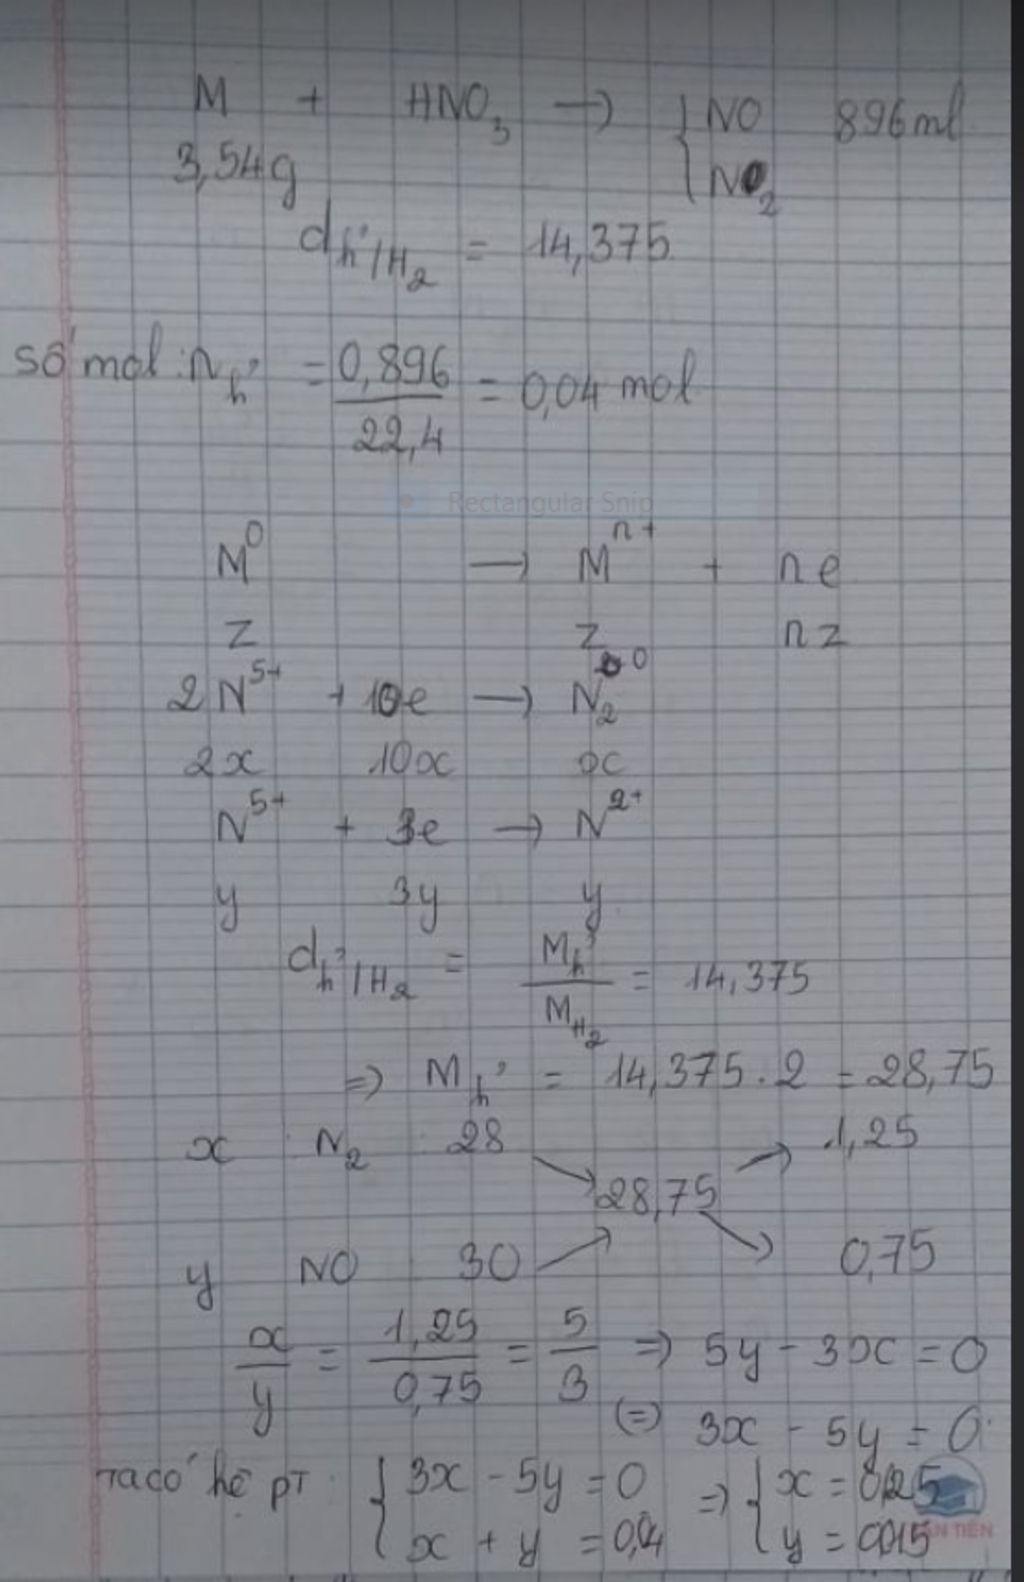 M + HNO₃ → { NO 896ml
3,54g { NO₂
d hỉ/H₂ = 14,375
số mol : n hỉ = 0,896/22,4 = 0,04 mol
Rectangular Snip
M⁰ → Mⁿ⁺ + ne
z z nz
2N⁵⁺ + 10e → N₂⁰
2x 10x x
N⁵⁺ + 3e → N²⁺
y 3y y
d h²/H₂ = M h²/M H₂ = 14,375
=> M h² = 14,375 . 2 = 28,75
x N₂ 28 1,25
28,75
y NO 30 0,75
x/y = 1,25/0,75 = 5/3 => 5y - 3x = 0
(=) 3x - 5y = 0
Ta có hệ pt { 3x - 5y = 0 => { x = 0,025
{ x + y = 0,04 { y = 0,015